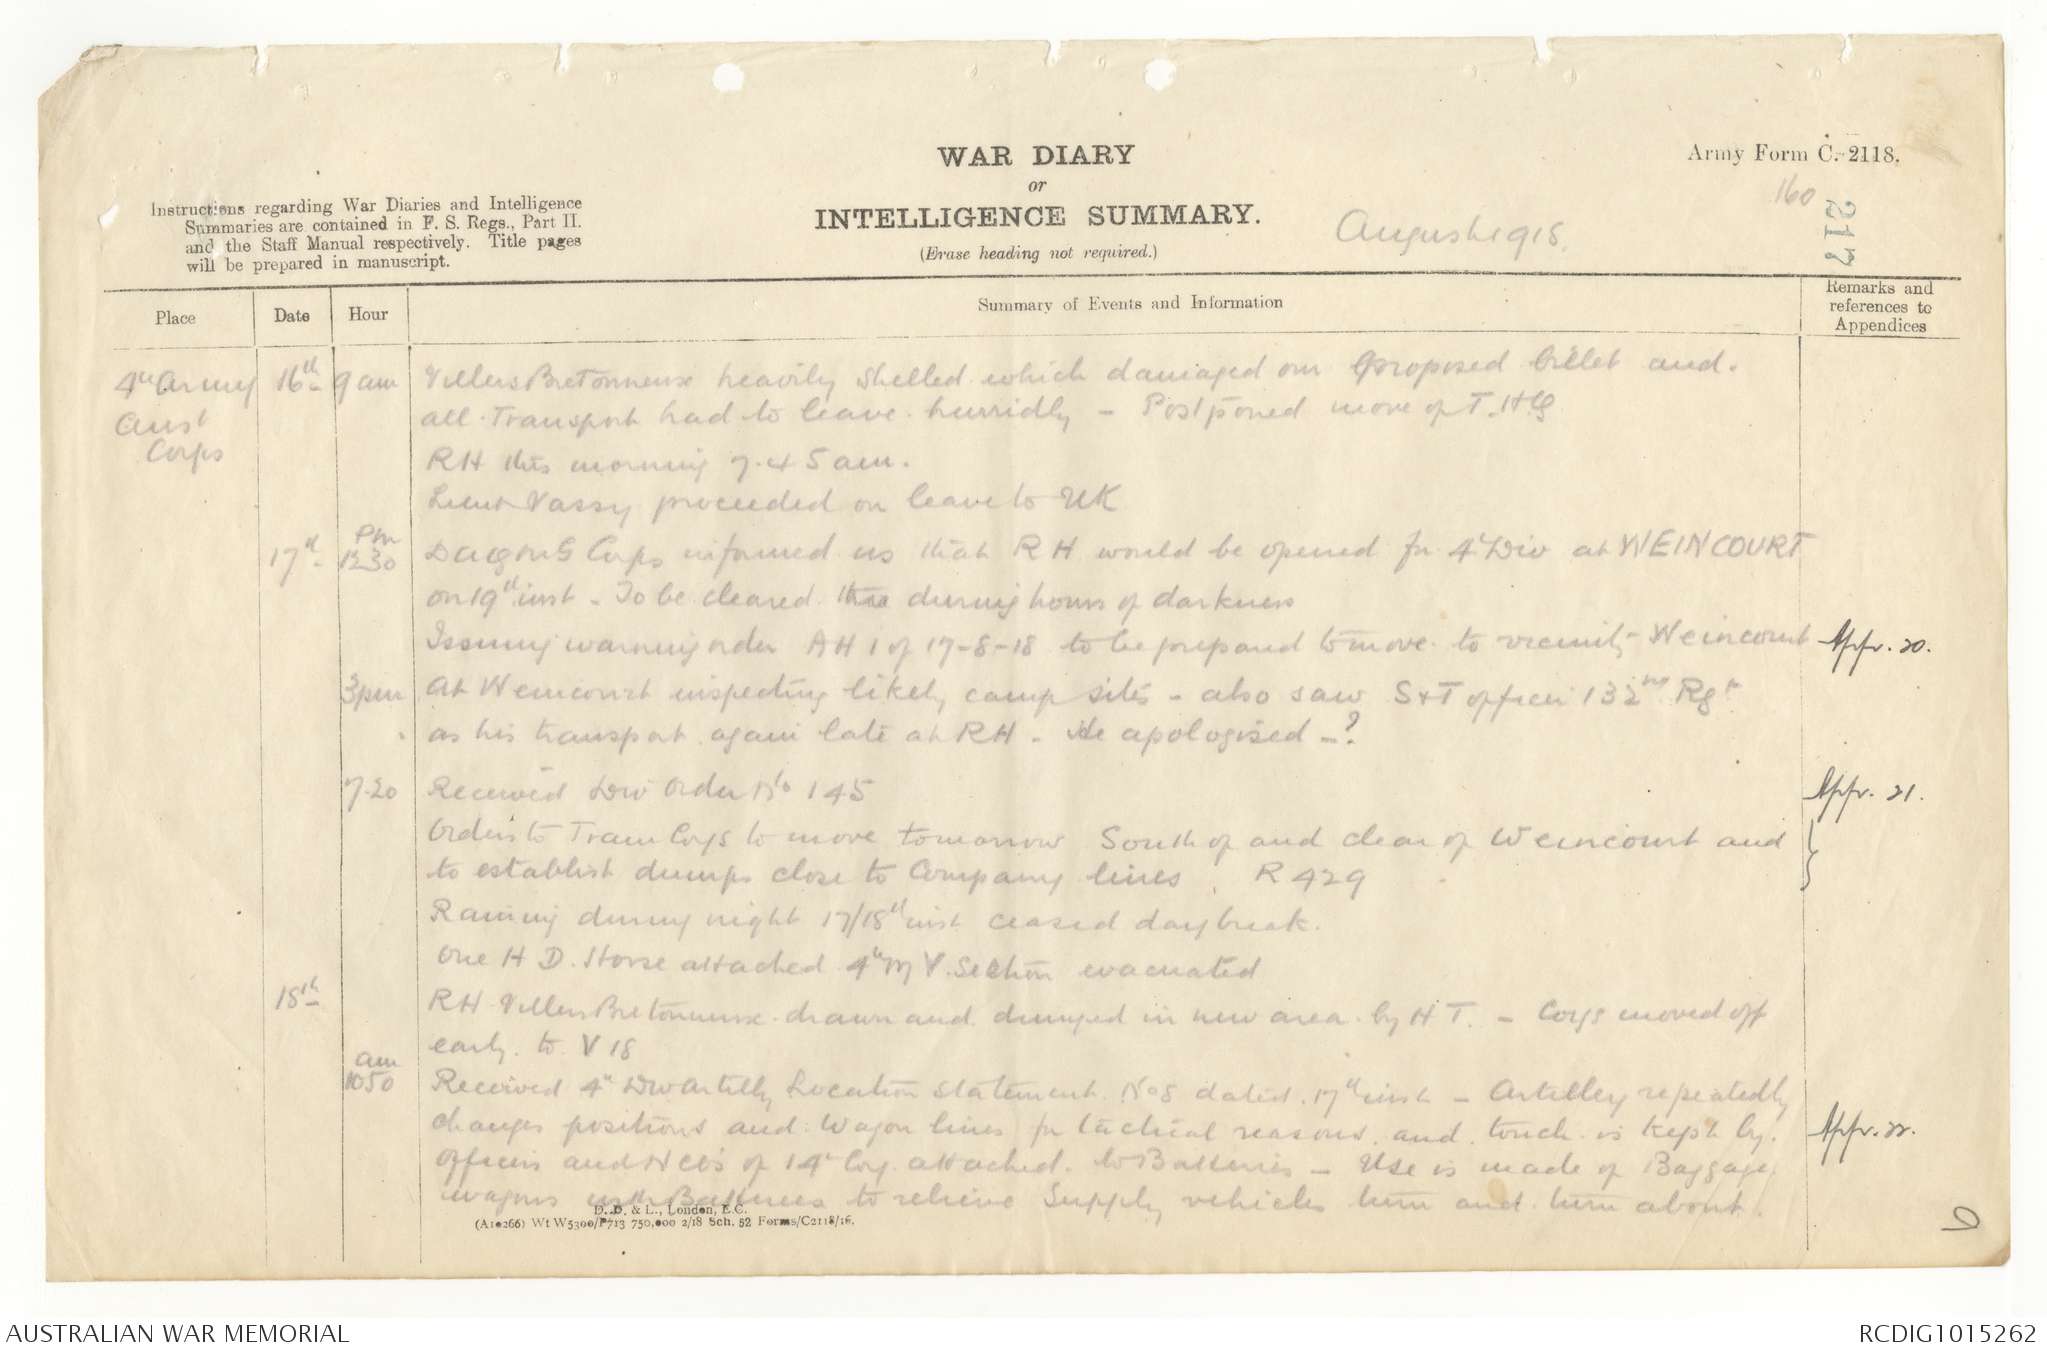 WAR DIARY
or
INTELLIGENCE SUMMARY.
(Erase heading not required.)
Army Form C. 2118.
160
217
August 1918.
Instructions regarding War Diaries and Intelligence
Summaries are contained in F. S. Regs., Part II.
and the Staff Manual respectively. Title pages
will be prepared in manuscript.
Place
Date
Hour
Summary of Events and Information
Remarks and
references to
Appendices
4th Army 16th 9 am Villers Bretonneux heavily shelled which damaged our proposed billet and
Aust all Transport had to leave hurridly - Postponed move of T. HQ
Corps
RH this morning 7.45 am.
Lieut Vassy proceeded on leave to UK
17th Pm 12 30 DAQMG Corps informed us that RH would be opened for 4th Div at WEINCOURT
on 19th inst - To be cleared during hours of darkness
Issuing warning order AH 1 of 17-8-18 to be prepared to move to vicinity Weincourt Appx. 20.
3pm At Weincourt inspecting likely camp sites - also saw S+T officer 132nd Rgt
as his transport again late at RH - He apologised -?
7.20 Received Div Order No 145 Appx. 21.
Orders to Train Coys to move tomorrow South of and clear of Weincourt and
to establish dumps close to Company lines. R 429
Raining during night 17/18th inst ceased daybreak.
One H D. Horse attached 4th M V. Section evacuated
18th RH Villers Bretonneux drawn and dumped in new area by H T. - Coys moved off
early to V 18
am 1050 Received 4th Div Artilly Location statement No 8 dated 17th inst - Artillery repeatedly
changes positions and wagon lines for tactical reasons and touch is kept by Appx. 22.
Officers and NCOs of 14th Coy attached to Batteries - Use is made of Baggage
wagons with Batteries to relieve Supply vehicles turn and turn about.
D. D. & L., London, E.C.
(A10266) Wt W5300/P713 750,000 2/18 Sch. 52 Forms/C2118/16.
AUSTRALIAN WAR MEMORIAL
RCDIG1015262